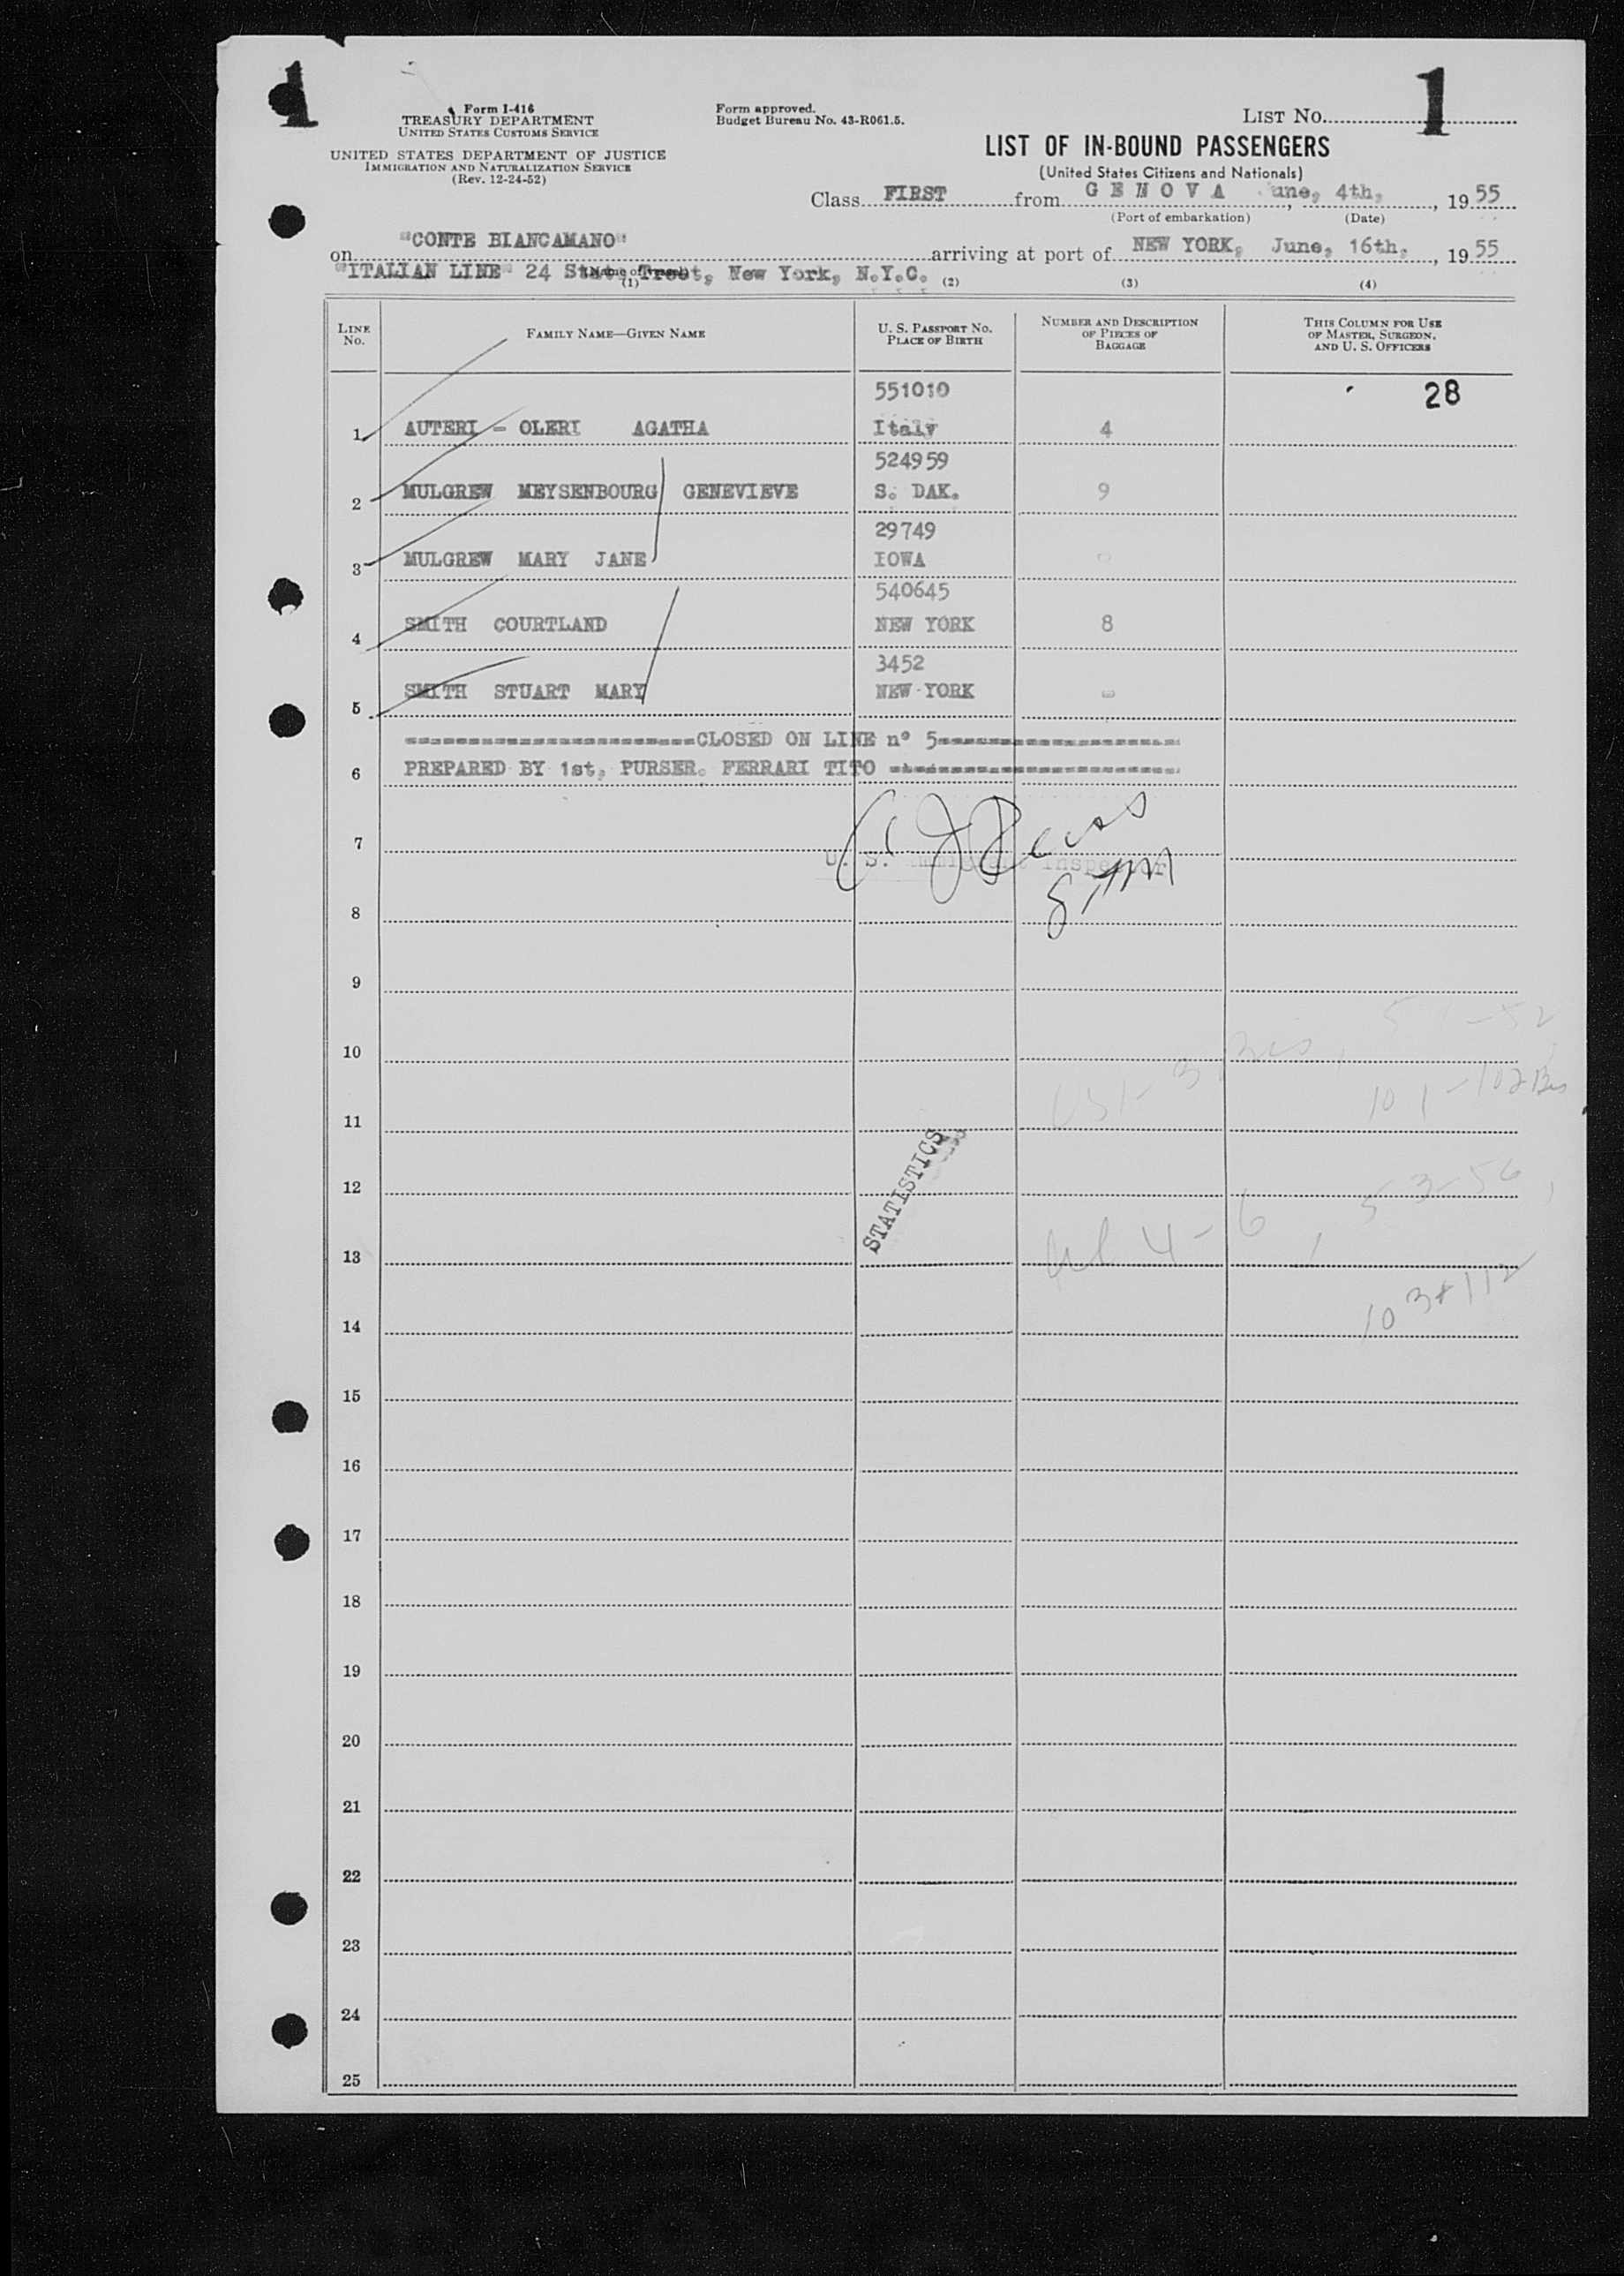 1
Form I-416
TREASURY DEPARTMENT
UNITED STATES CUSTOMS SERVICE
UNITED STATES DEPARTMENT OF JUSTICE
IMMIGRATION AND NATURALIZATION SERVICE
(Rev. 12-24-52)
Form approved.
Budget Bureau No. 43-R061.5.
LIST No. 1
LIST OF IN-BOUND PASSENGERS
(United States Citizens and Nationals)
Class FIRST from GENOVA une, 4th, , 19 55
(Port of embarkation) (Date)
on "CONTE BIANCAMANO" arriving at port of NEW YORK, June, 16th, , 19 55
"ITALIAN LINE" 24 State Treet, New York, N.Y.C.
(1) (2) (3) (4)
LINE No. FAMILY NAME—GIVEN NAME U. S. PASSPORT No. PLACE OF BIRTH NUMBER AND DESCRIPTION OF PIECES OF BAGGAGE THIS COLUMN FOR USE OF MASTER, SURGEON, AND U. S. OFFICERS
551010 28
1 AUTERI - OLERI AGATHA Italy 4
524959
2 MULGREW MEYSENBOURG GENEVIEVE S. DAK. 9
29749
3 MULGREW MARY JANE IOWA
540645
4 SMITH COURTLAND NEW YORK 8
3452
5 SMITH STUART MARY NEW-YORK
CLOSED ON LINE nº 5
6 PREPARED BY 1st, PURSER. FERRARI TITO
7
U. S. Immigrant Inspector
8
9
10
101-102 Bis
11
STATISTICS
12
53-56
4-6
13
103+112
14
15
16
17
18
19
20
21
22
23
24
25